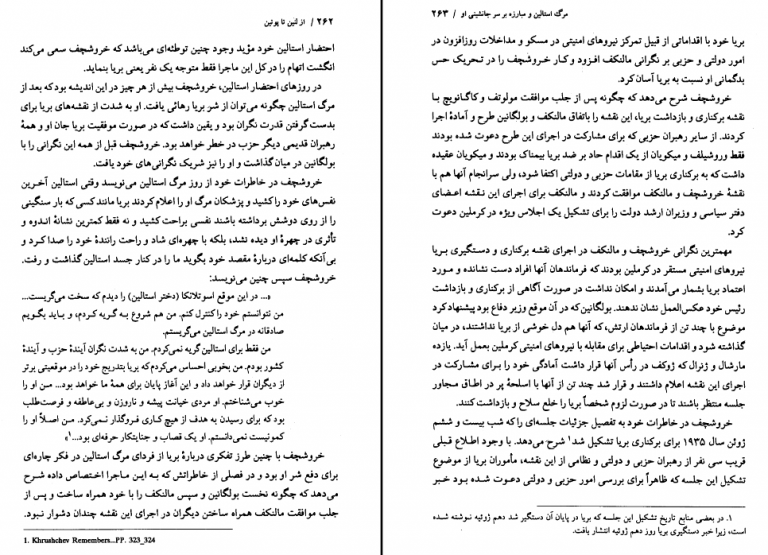 ۲۶۲ / از لنین تا پوتین
احتضار استالین خود مؤید وجود چنین توطئه‌ای می‌باشد که خروشچف سعی می‌کند
انگشت اتهام را در کل این ماجرا فقط متوجه یک نفر یعنی بریا بنماید.
در روزهای احتضار استالین، خروشچف بیش از هر چیز در این اندیشه بود که بعد از
مرگ استالین چگونه می‌توان از شر بریا رهائی یافت. او به شدت از نقشه‌های بریا برای
بدست گرفتن قدرت نگران بود و یقین داشت که در صورت موفقیت بریا جان او و همهٔ
رهبران قدیمی دیگر حزب در خطر خواهد بود. خروشچف قبل از همه این نگرانی را با
بولگانین در میان گذاشت و او را نیز شریک نگرانی‌های خود یافت.
خروشچف در خاطرات خود از روز مرگ استالین می‌نویسد وقتی استالین آخرین
نفس‌های خود را کشید و پزشکان مرگ او را اعلام کردند بریا مانند کسی که بار سنگینی
را از روی دوشش برداشته باشند نفسی براحت کشید و نه فقط کمترین نشانهٔ اندوه و
تأثری در چهرهٔ او دیده نشد، بلکه با چهره‌ای شاد و راحت رانندهٔ خود را صدا کرد و
بی‌آنکه کلمه‌ای دربارهٔ مقصد خود بگوید ما را در کنار جسد استالین گذاشت و رفت.
خروشچف سپس چنین می‌نویسد:
«... در این موقع اسوتلانکا (دختر استالین) را دیدم که سخت می‌گریست...
من نتوانستم خود را کنترل کنم. من هم شروع به گریه کردم، و باید بگویم
صادقانه در مرگ استالین می‌گریستم.
من فقط برای استالین گریه نمی‌کردم. من به شدت نگران آیندهٔ حزب و آیندهٔ
کشور بودم. من بخوبی احساس می‌کردم که بریا بتدریج خود را در موقعیتی برتر
از دیگران قرار خواهد داد و این آغاز پایان برای همهٔ ما خواهد بود... من او را
خوب می‌شناختم. او مردی خیانت پیشه و ناروزن و بی‌عاطفه و فرصت‌طلب
بود که برای رسیدن به هدف از هیچ کاری فروگذار نمی‌کرد. من اصلاً او را
کمونیست نمی‌دانستم. او یک قصاب و جنایتکار حرفه‌ای بود...»۱
خروشچف با چنین طرز تفکری دربارهٔ بریا از فردای مرگ استالین در فکر چاره‌ای
برای دفع شر او بود و در فصلی از خاطراتش که به این ماجرا اختصاص داده شرح
می‌دهد که چگونه نخست بولگانین و سپس مالنکف را با خود همراه ساخت و پس از
جلب موافقت مالنکف همراه ساختن دیگران در اجرای این نقشه چندان دشوار نبود.
1. Khrushchev Remembers...PP. 323_324
مرگ استالین و مبارزه بر سر جانشینی او / ۲۶۳
بریا خود با اقداماتی از قبیل تمرکز نیروهای امنیتی در مسکو و مداخلات روزافزون در
امور دولتی و حزبی بر نگرانی مالنکف افزود و کار خروشچف را در تحریک حس
بدگمانی او نسبت به بریا آسان کرد.
خروشچف شرح می‌دهد که چگونه پس از جلب موافقت مولوتف و کاگانویچ با
نقشه برکناری و بازداشت بریا، این نقشه را باتفاق مالنکف و بولگانین طرح و آمادهٔ اجرا
کردند. از سایر رهبران حزبی که برای مشارکت در اجرای این طرح دعوت شده بودند
فقط وروشیلف و میکویان از یک اقدام حاد بر ضد بریا بیمناک بودند و میکویان عقیده
داشت که به برکناری بریا از مقامات حزبی و دولتی اکتفا شود، ولی سرانجام آنها هم با
نقشهٔ خروشچف و مالنکف موافقت کردند و مالنکف برای اجرای این نقشه اعضای
دفتر سیاسی و وزیران ارشد دولت را برای تشکیل یک اجلاس ویژه در کرملین دعوت
کرد.
مهمترین نگرانی خروشچف و مالنکف در اجرای نقشه برکناری و دستگیری بریا
نیروهای امنیتی مستقر در کرملین بودند که فرماندهان آنها افراد دست نشانده و مورد
اعتماد بریا بشمار می‌آمدند و امکان نداشت در صورت آگاهی از برکناری و بازداشت
رئیس خود عکس‌العمل نشان ندهند. بولگانین که در آن موقع وزیر دفاع بود پیشنهاد کرد
موضوع با چند تن از فرماندهان ارتش، که آنها هم دل خوشی از بریا نداشتند، در میان
گذاشته شود و اقدامات احتیاطی برای مقابله با نیروهای امنیتی کرملین بعمل آید. یازده
مارشال و ژنرال که ژوکف در رأس آنها قرار داشت آمادگی خود را برای مشارکت در
اجرای این نقشه اعلام داشتند و قرار شد چند تن از آنها با اسلحهٔ پر در اطاق مجاور
جلسه منتظر باشند تا در صورت لزوم شخصاً بریا را خلع سلاح و بازداشت کنند.
خروشچف در خاطرات خود به تفصیل جزئیات جلسه‌ای را که شب بیست و ششم
ژوئن سال ۱۹۳۵ برای برکناری بریا تشکیل شد۱ شرح می‌دهد. با وجود اطلاع قبلی
قریب سی نفر از رهبران حزبی و دولتی و نظامی از این نقشه، مأموران بریا از موضوع
تشکیل این جلسه که ظاهراً برای بررسی امور حزبی و دولتی دعوت شده بود خبر
۱. در بعضی منابع تاریخ تشکیل این جلسه که بریا در پایان آن دستگیر شد دهم ژوئیه نوشته شده
است، زیرا خبر دستگیری بریا روز دهم ژوئیه انتشار یافت.